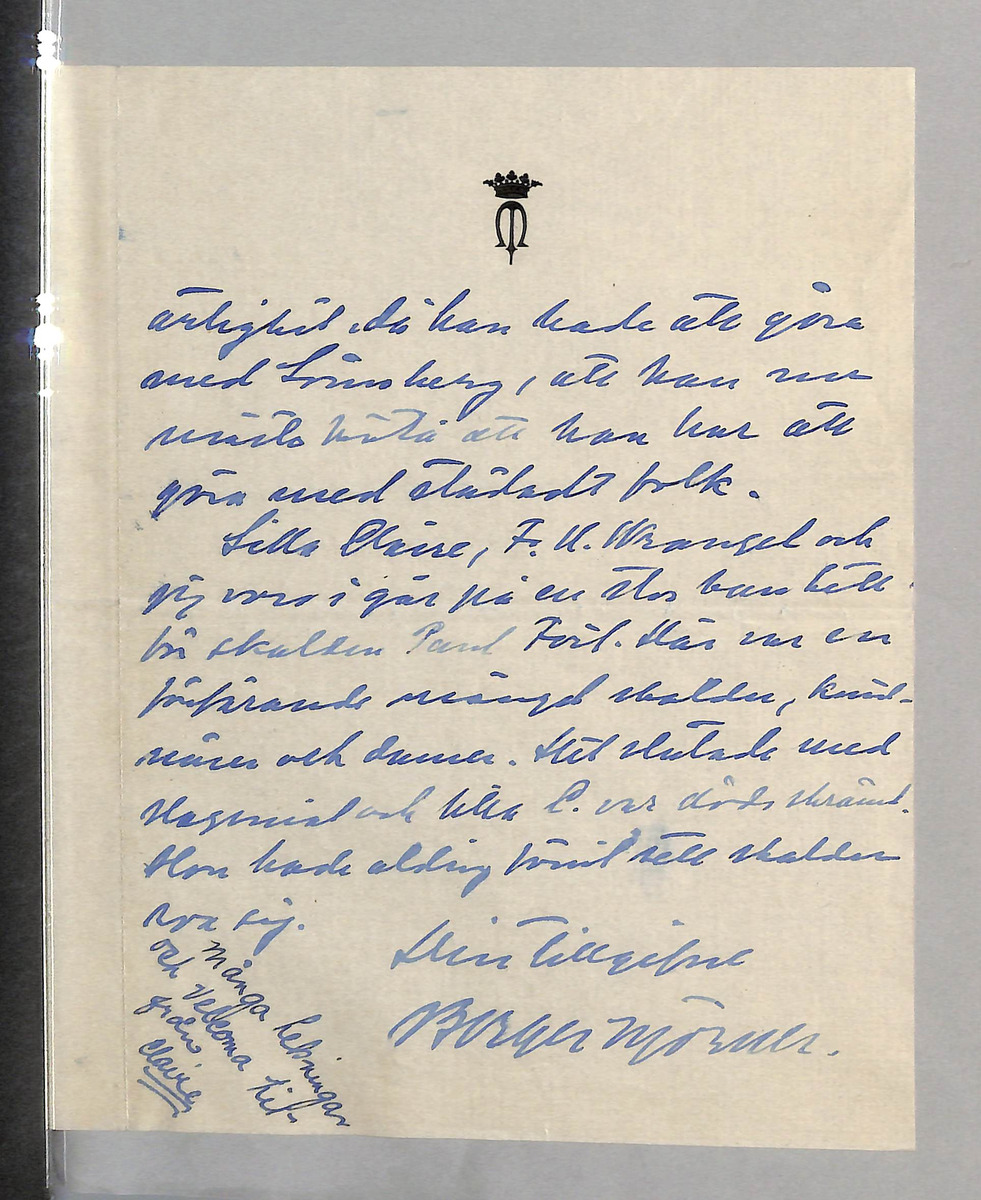 ärlighet då han hade att göra
med Lönnberg, att han nu
måste veta att han har att
göra med städadt folk.
Lilla Claire, F. U. Wrangel och
jag voro i går på en stor bankett
för skalden Paul Fort. Där var en
förfärande mängd skalder, konst-
närer och damer. Det slutade med
slagsmål och lilla C. var dödsskrämd.
Hon hade aldrig förut sett skalder
roa sig.
Din tillgifne
Birger Mörner.
många helsningar
och Velkomna hit
Claire